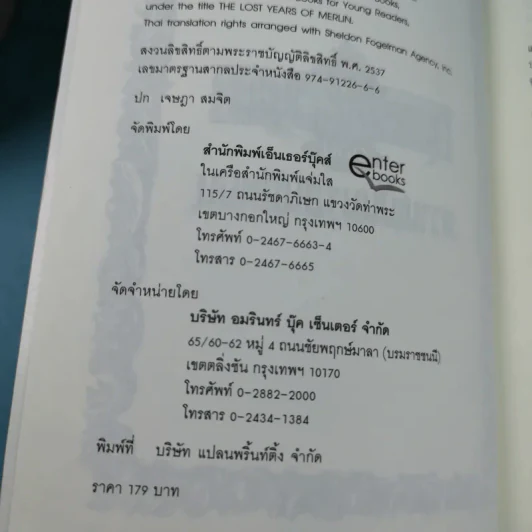 Books for Young Readers,
under the title THE LOST YEARS OF MERLIN.
Thai translation rights arranged with Sheldon Fogelman Agency, Inc.
สงวนลิขสิทธิ์ตามพระราชบัญญัติลิขสิทธิ์ พ.ศ. 2537
เลขมาตรฐานสากลประจำหนังสือ 974-91226-6-6
ปก เจษฎา สมจิต
จัดพิมพ์โดย
สำนักพิมพ์เอ็นเธอร์บุ๊คส์
enter books
ในเครือสำนักพิมพ์แจ่มใส
115/7 ถนนรัชดาภิเษก แขวงวัดท่าพระ
เขตบางกอกใหญ่ กรุงเทพฯ 10600
โทรศัพท์ 0-2467-6663-4
โทรสาร 0-2467-6665
จัดจำหน่ายโดย
บริษัท อมรินทร์ บุ๊ค เซ็นเตอร์ จำกัด
65/60-62 หมู่ 4 ถนนชัยพฤกษ์มาลา (บรมราชชนนี)
เขตตลิ่งชัน กรุงเทพฯ 10170
โทรศัพท์ 0-2882-2000
โทรสาร 0-2434-1384
พิมพ์ที่ บริษัท แปลนพริ้นท์ติ้ง จำกัด
ราคา 179 บาท